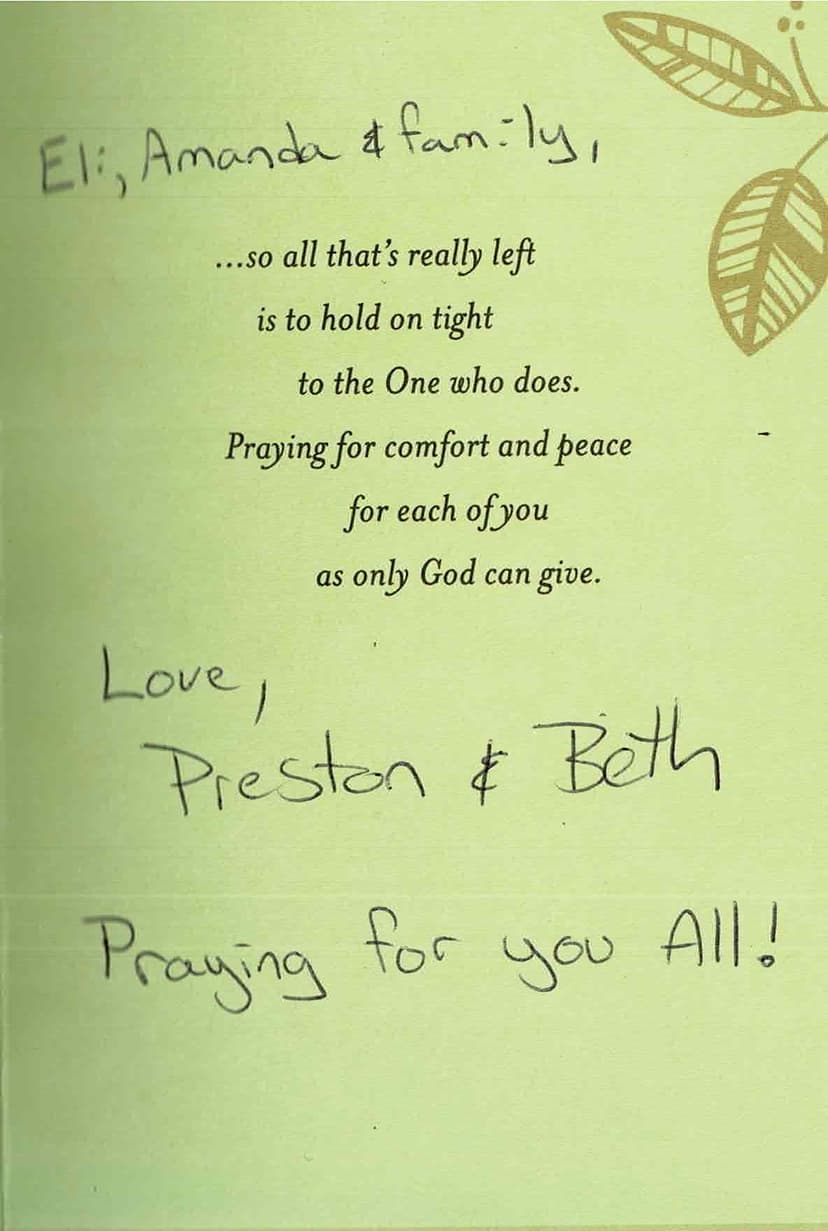 Eli, Amanda & family,
...so all that's really left
is to hold on tight
to the One who does.
Praying for comfort and peace
for each of you
as only God can give.
Love,
Preston & Beth
Praying for you All!